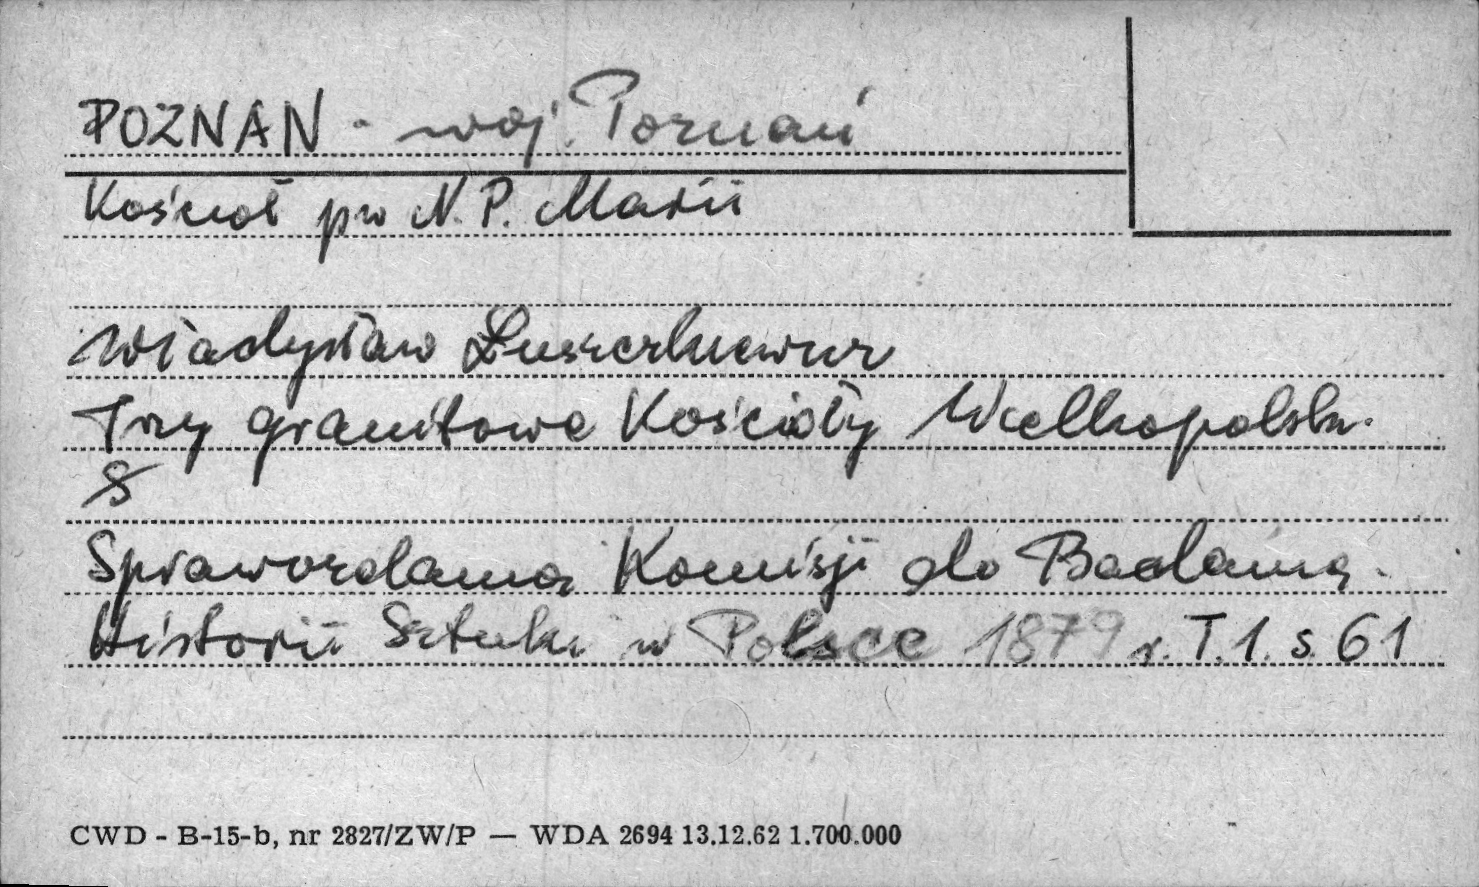 POZNAN - woj. Poznań
Kościół pw N. P. Marii
Władysław Łuszczkiewicz
Trzy granitowe Kościoły Wielkopolsk.
S
Sprawozdania Komisji do Badania
Historii Sztuki w Polsce 1879 r. T. 1. s. 61
CWD - B-15-b, nr 2827/ZW/P — WDA 2694 13.12.62 1.700.000